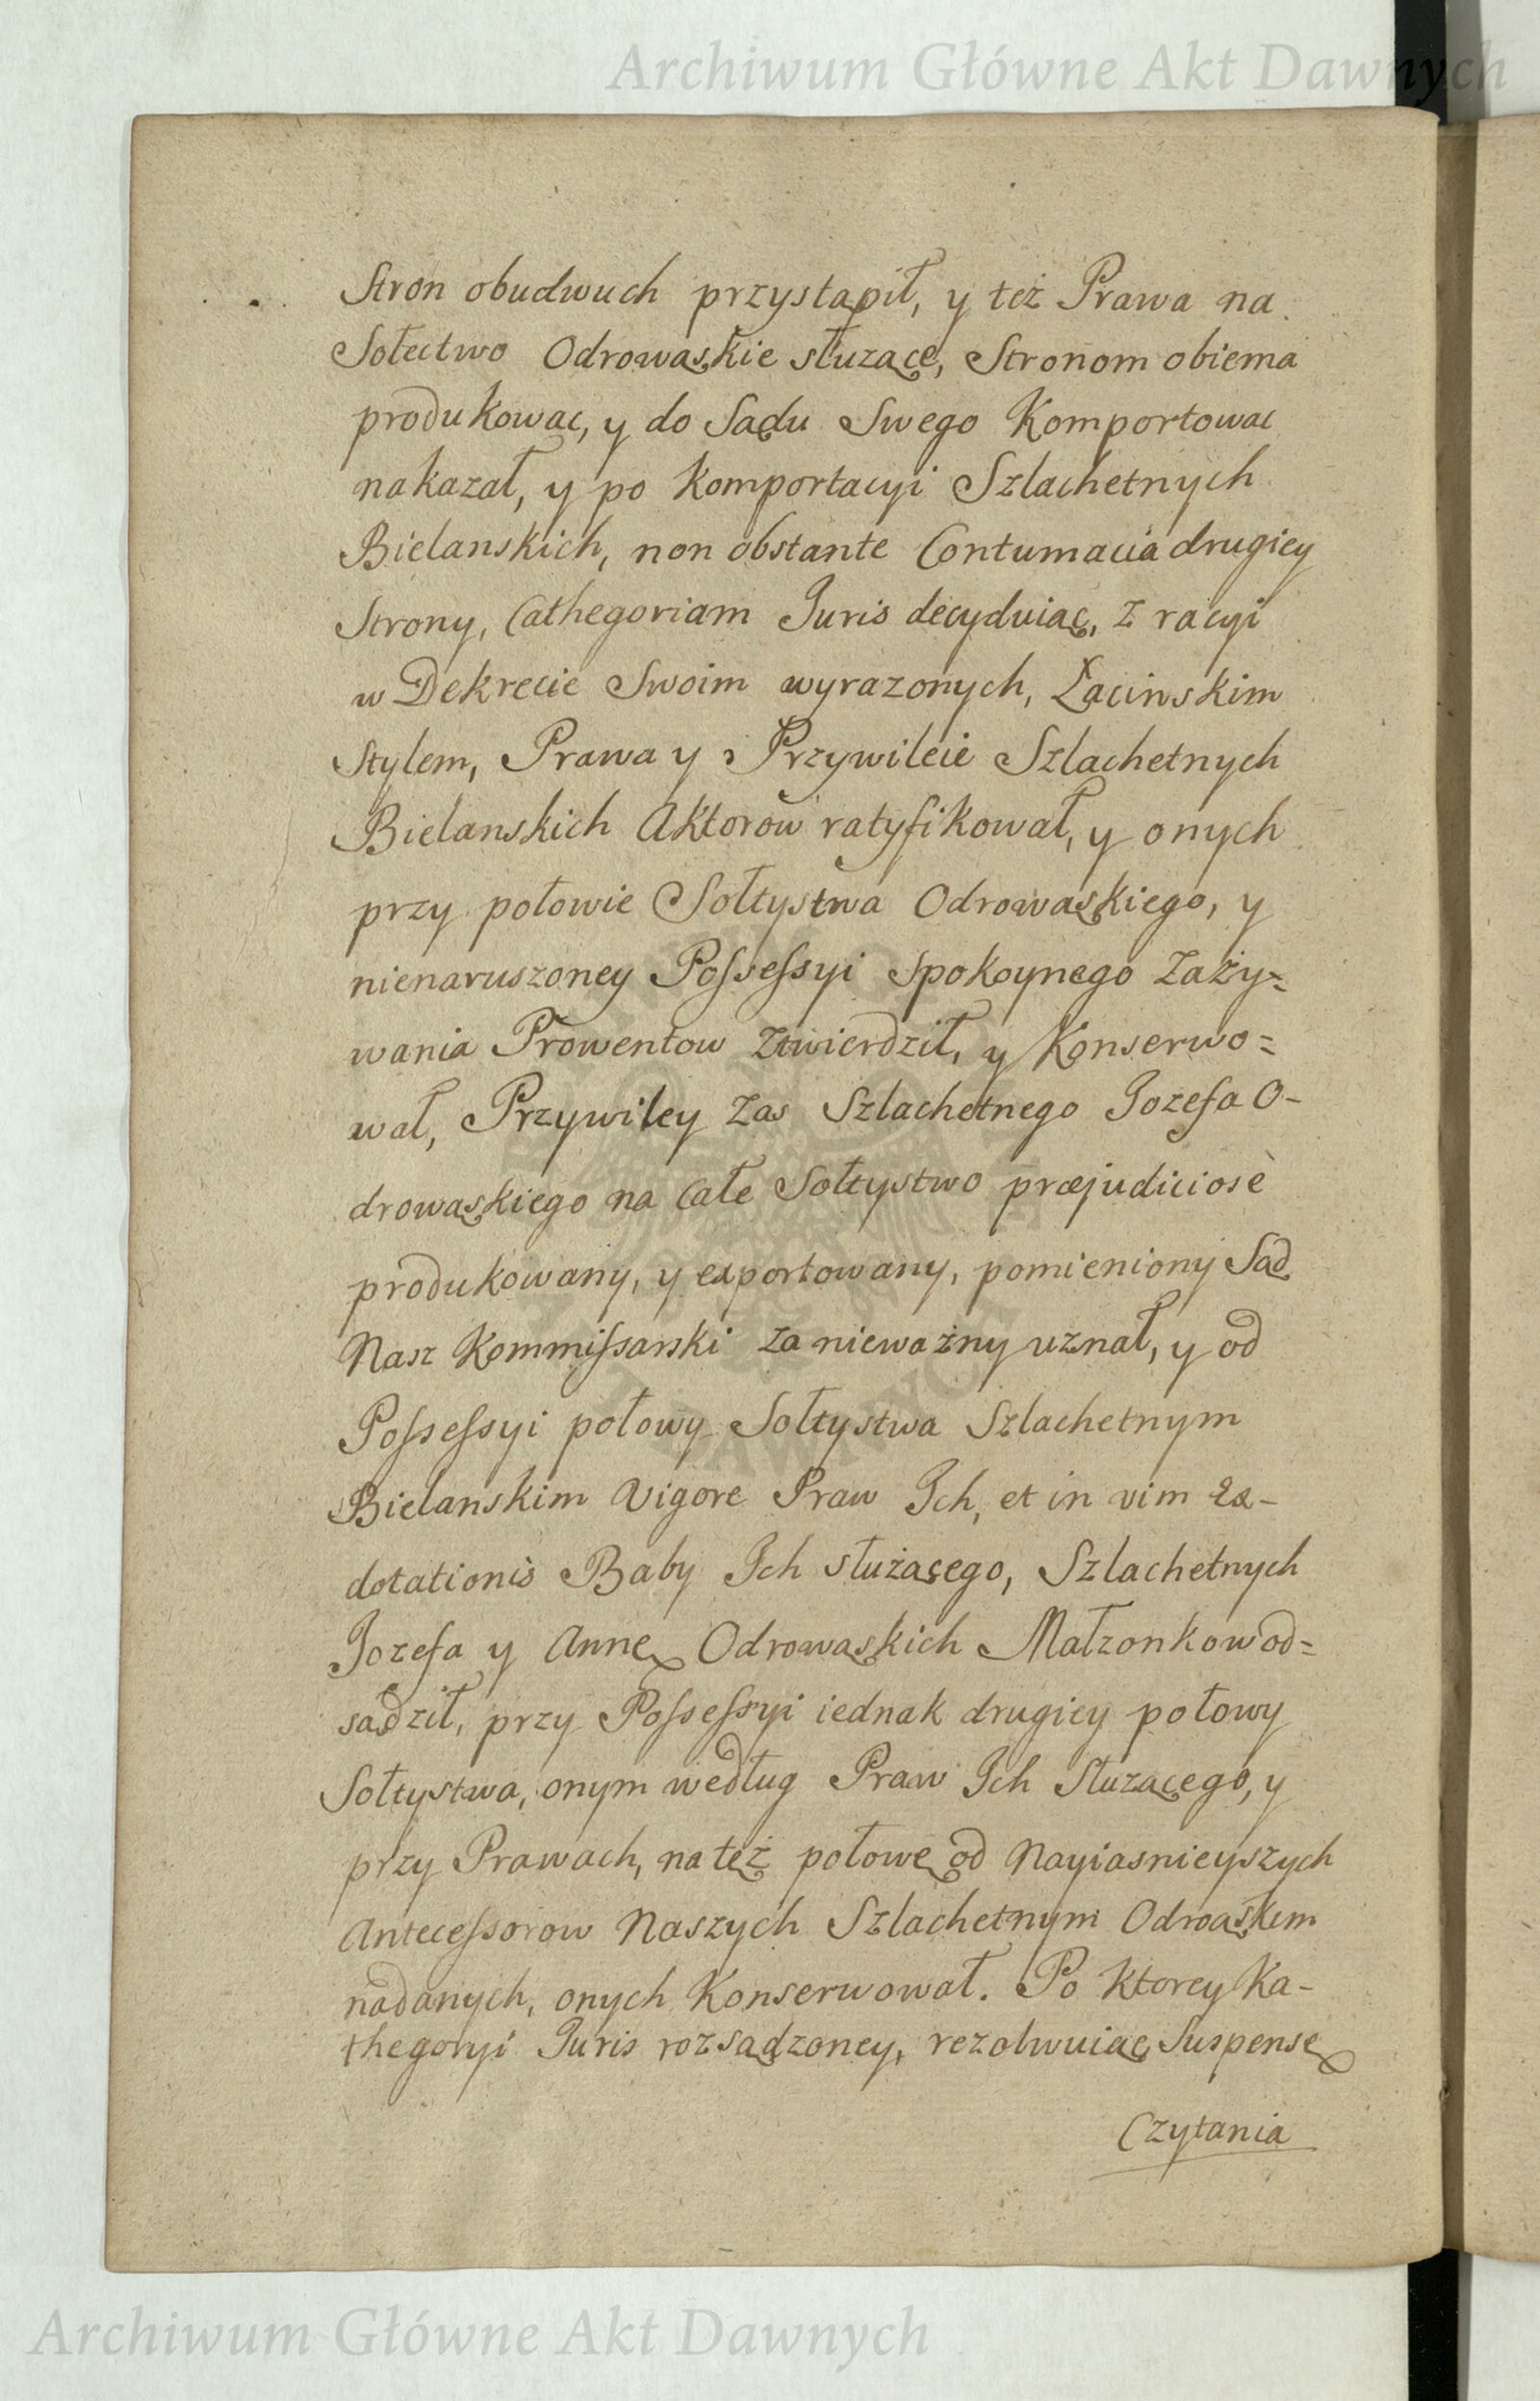 Archiwum Główne Akt Dawnych
Stron obudwuch przystąpił, y też Prawa na
Sołectwo Odrowąskie służące, Stronom obiema
produkowac, y do Sądu Swego Komportowac
nakazał, y po Komportacyi Szlachetnych
Bielanskich, non obstante Contumacia drugiey
Strony, Cathegoriam Juris decyduiąc, z racyi
w Dekrecie Swoim wyrazonych, Łacinskim
Stylem, Prawa y Przywileie Szlachetnych
Bielanskich Aktorow ratyfikował, y onych
przy połowie Sołtystwa Odrowąskiego, y
nienaruszoney Possessyi spokoynego Zaży=
wania Prowentow Ztwierdził, y Konserwo=
wał, Przywiley Zas Szlachetnego Jozefa O-
drowąskiego na Całe Sołtystwo præjudiciosè
produkowany, y exportowany, pomieniony Sąd
Nasz Kommissarski za nieważny uznał, y od
Possessyi połowy Sołtystwa Szlachetnym
Bielanskim Vigore Praw Jch, et in vim Ex-
dotationis Baby Jch służącego, Szlachetnych
Jozefa y Annę Odrowąskich Małzonkow od=
sądził, przy Possessyi iednak drugiey połowy
Sołtystwa, onym według Praw Jch Sluzącego, y
przy Prawach, na też połowę od Nayiasnieyszych
Antecessorow Naszych Szlachetnym Odroąskim
nadanych, onych Konserwował. Po Ktorey Ka-
thegoryi Juris rozsądzoney, rezolwuiąc Suspensę
Czytania
Archiwum Główne Akt Dawnych